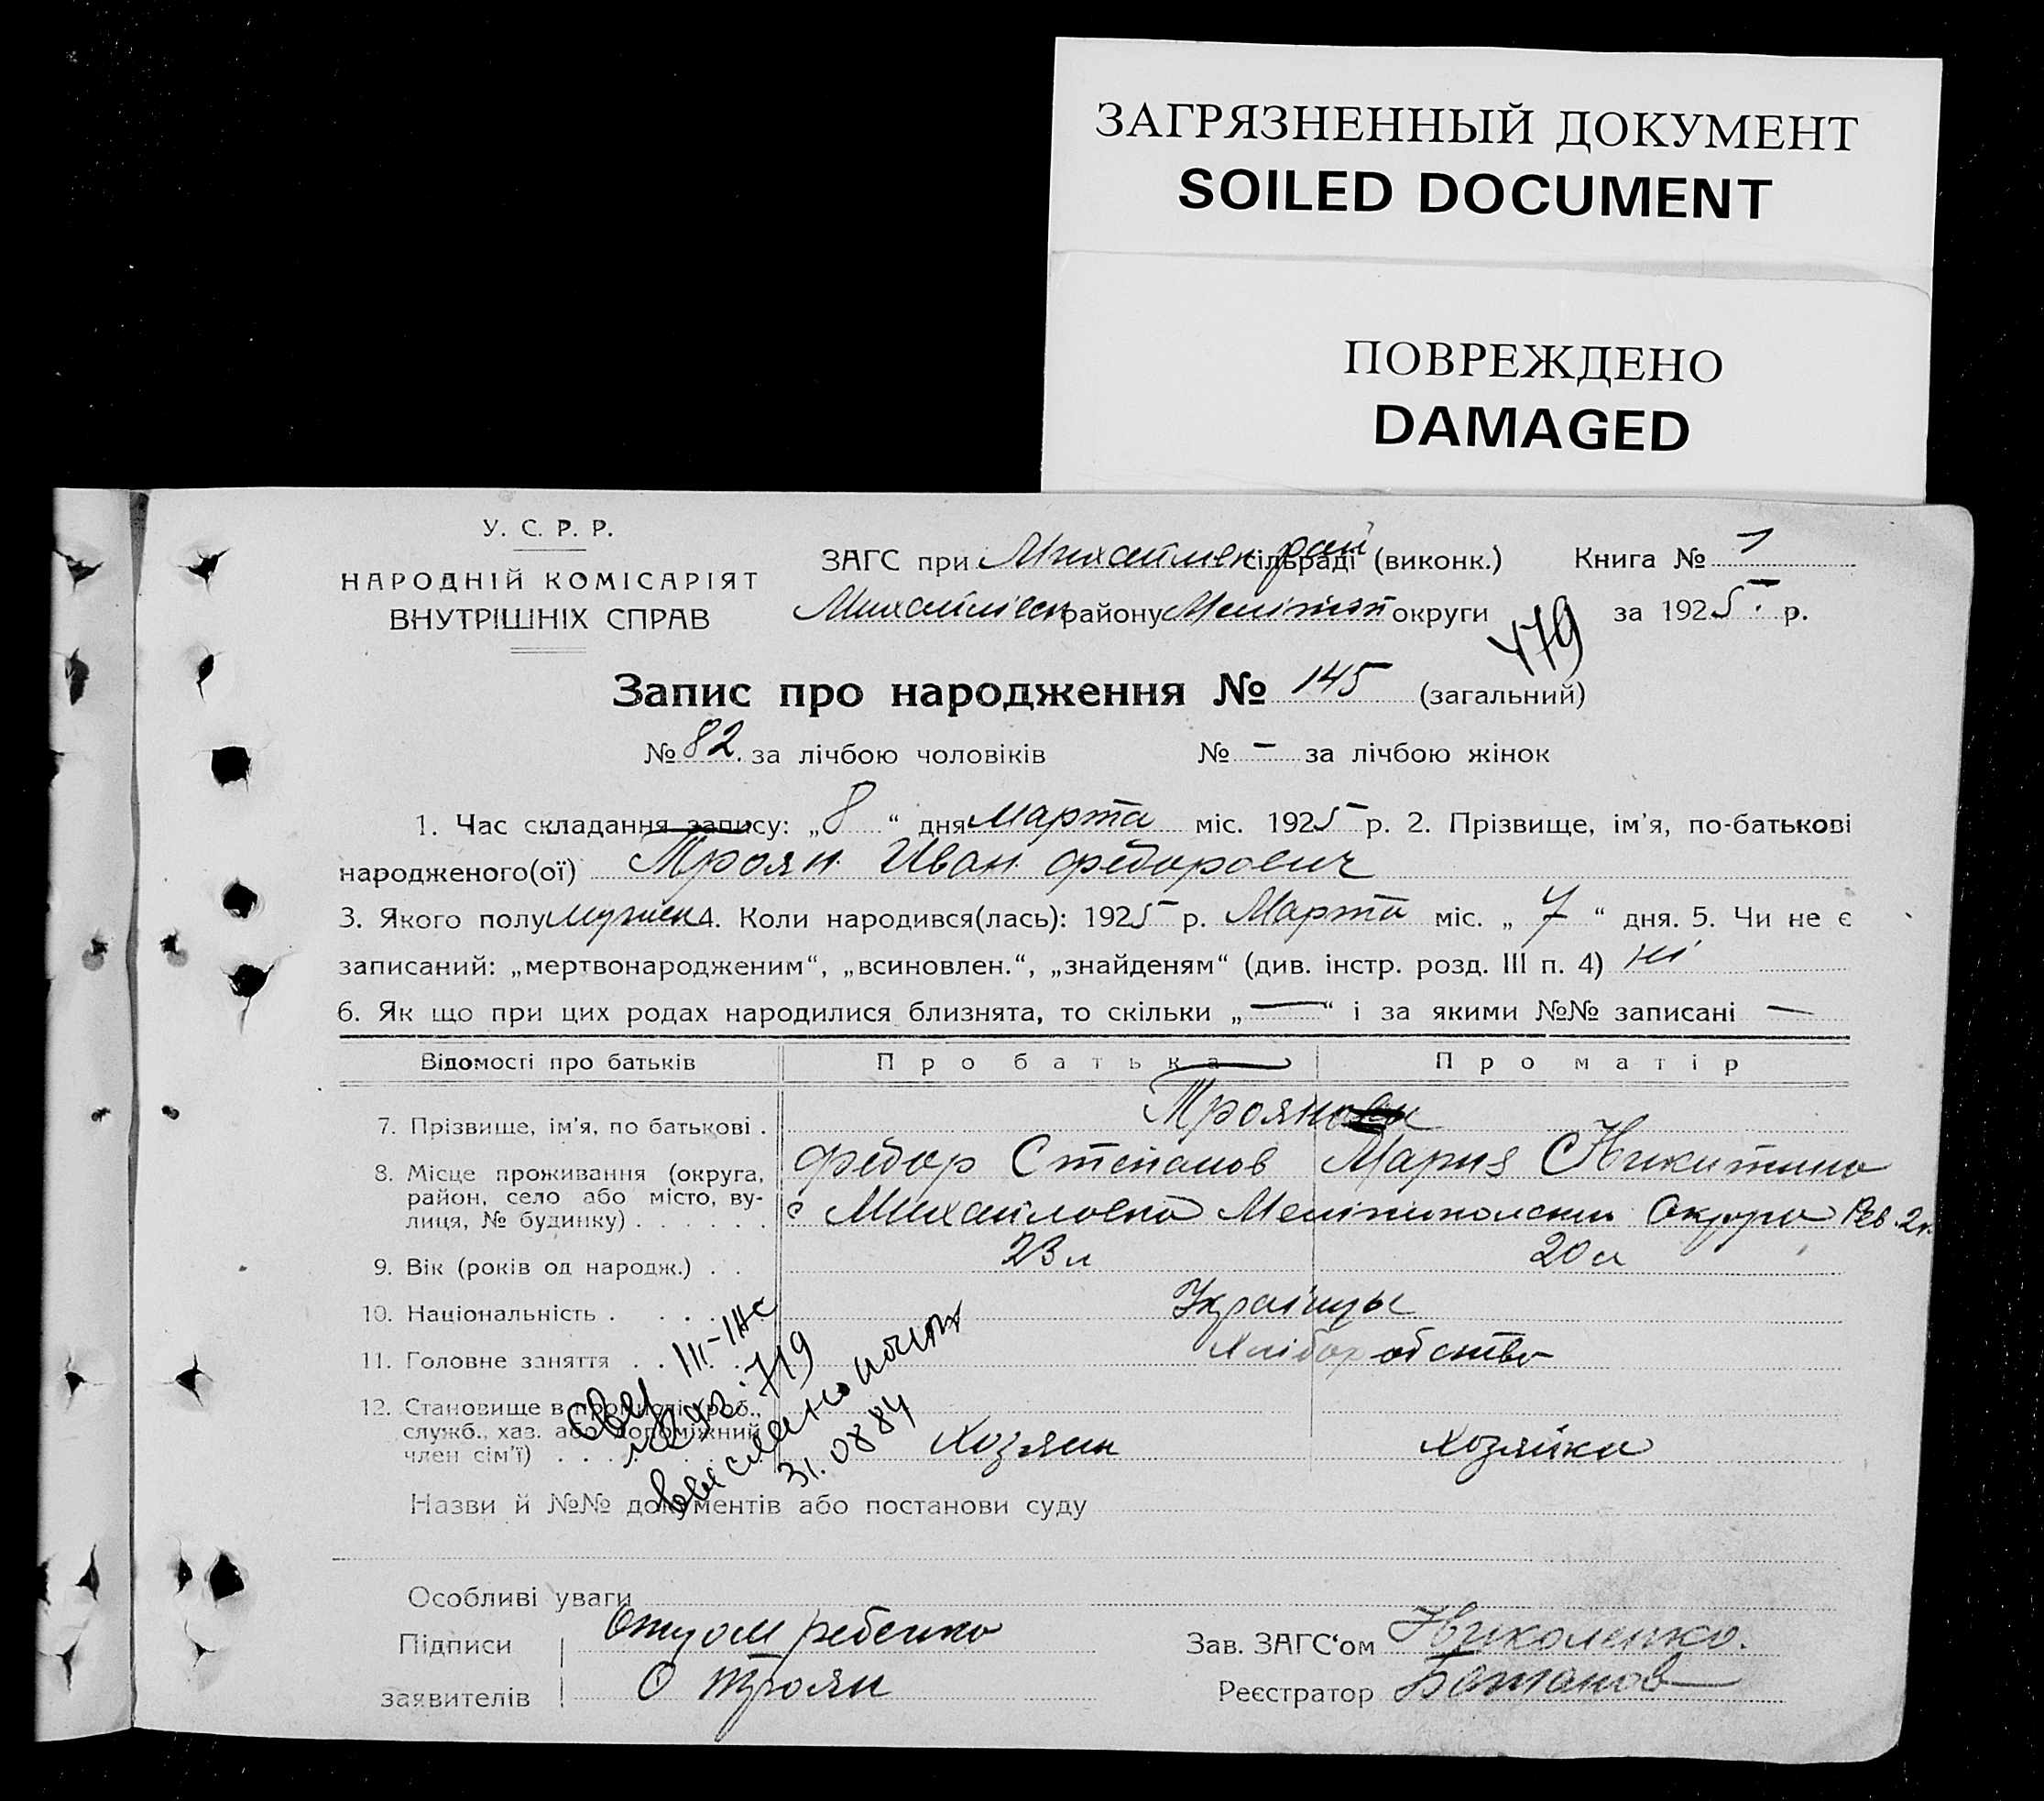 ЗАГРЯЗНЕННЫЙ ДОКУМЕНТ
SOILED DOCUMENT
ПОВРЕЖДЕНО
DAMAGED
У. С. Р. Р.
НАРОДНІЙ КОМІСАРІЯТ
ВНУТРІШНІХ СПРАВ
ЗАГС при Михайлик рай сільраді (виконк.) Книга № 1
Михайлівськ району Мелітоп округи за 1925 р.
479
Запис про народження № 145 (загальний)
№ 82. за лічбою чоловіків № — за лічбою жінок
1. Час складання запису: „8“ дня марта міс. 1925 р. 2. Прізвище, ім'я, по-батькові
народженого(ої) Троян Иван Федорович
3. Якого полу мужск 4. Коли народився(лась): 1925 р. Марта міс. „7“ дня. 5. Чи не є
записаний: „мертвонародженим“, „всиновлен.“, „знайденям“ (див. інстр. розд. III п. 4) ні
6. Як що при цих родах народилися близнята, то скільки „—“ і за якими №№ записані —
Відомості про батьків Про батька Про матір
7. Прізвище, ім'я, по батькові . Троян
Федор Степанов Мария Никитина
8. Місце проживання (округа,
район, село або місто, ву-
лиця, № будинку) . . . . . . с Михайловка Мелітопольськи Округа Рев. 2
9. Вік (років од народж.) . . 23 л 20 л
10. Національність . . . . Українцы
11. Головне заняття . . . . Хліборобство
12. Становище в промислі (роб.,
служб., хаз. або допоміжний
член сім'ї) . . . . Хозяин хозяйка
свид. III-ЖС
719
выслано почт
31.08 84
Назви й №№ документів або постанови суду
Особливі уваги
Підписи Отцом ребенка Зав. ЗАГС‘ом Николенко.
заявителів Ф Троян Реєстратор